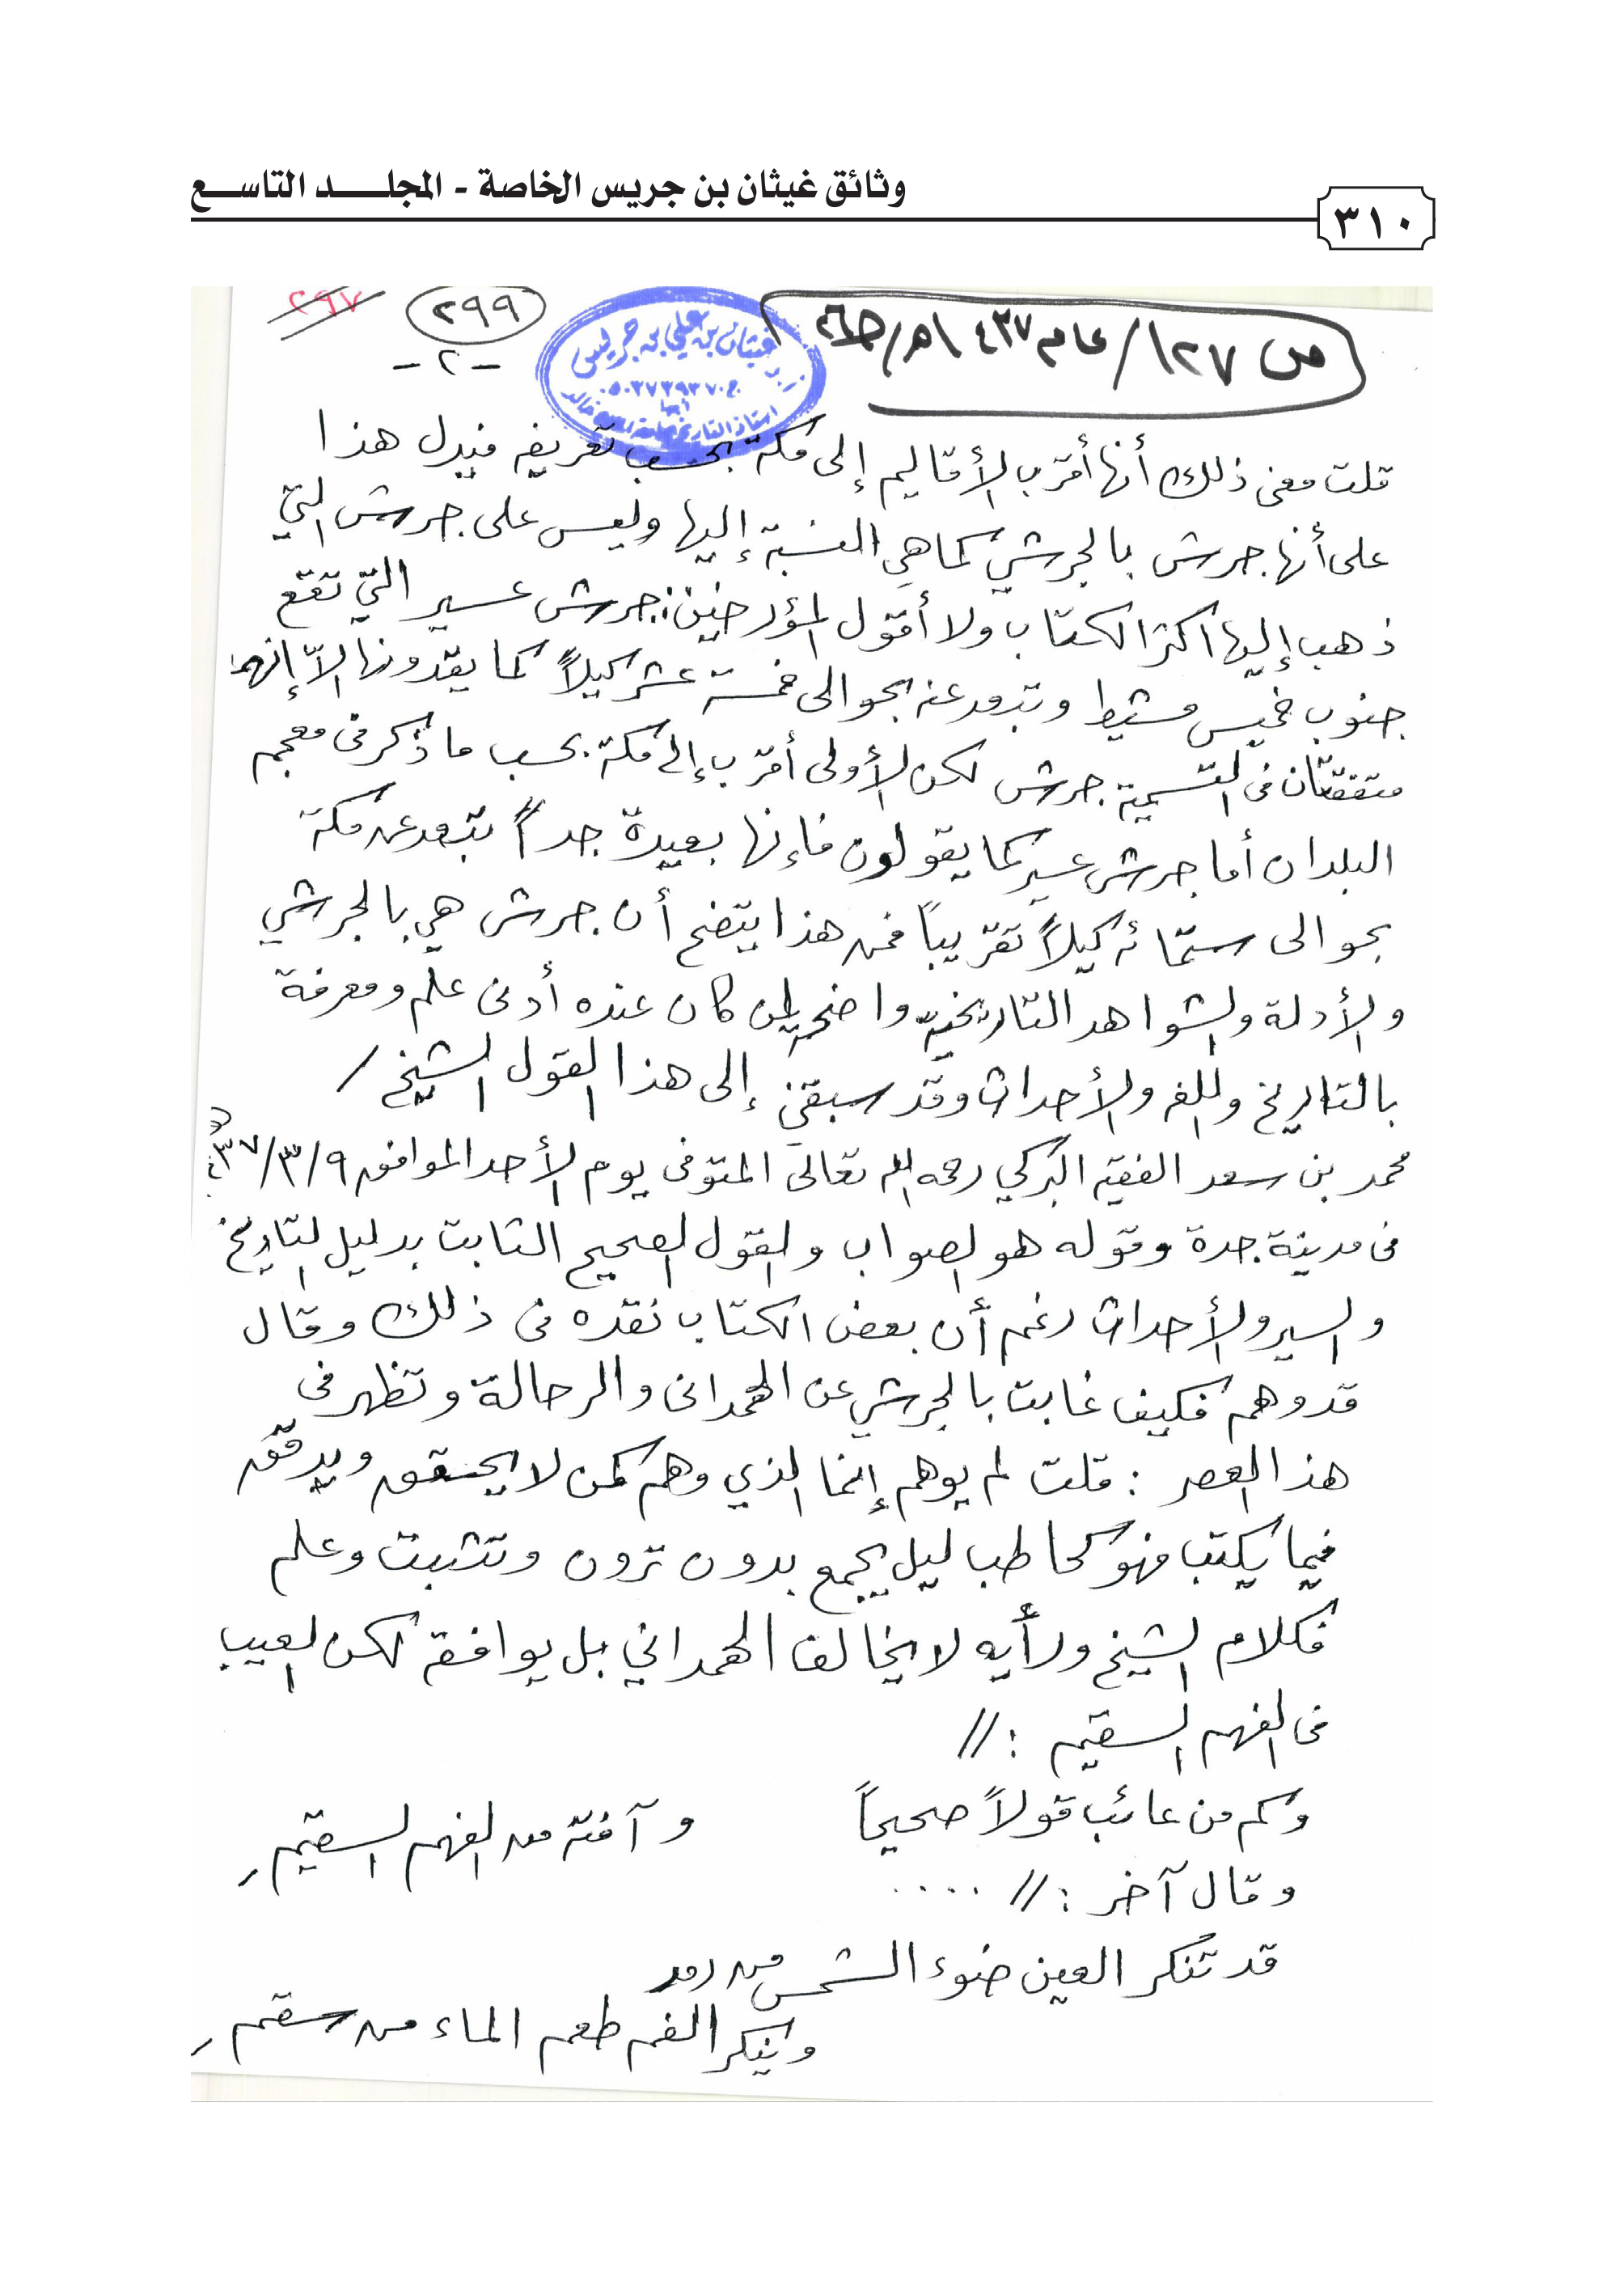 وثائق غيثان بن جريس الخاصة - المجلد التاسع
٣١٠
٢٩٧
٢٩٩
-٢-
ص ١٢٧/ عام ١٤٣٧هـ/
غيثان بن علي بن جريس
ج.٠٥٠٣٧٣٩٣٧٠
أبها
أستاذ التاريخ بجامعة الملك خالد
قلت معنى ذلك أنها أقرب الأقاليم إلى مكة بحسب تعريفه فيدل هذا
على أنها جرش بالجرشي كما هي النسبة إليها وليس على جرش التي
ذهب إليها أكثر الكتاب ولا أقول المؤرخين: جرش عسير التي تقع
جنوب خميس مشيط وتبعد عنه بحوالى خمسة عشر كيلاً كما يقدرونها إلا إنهما
متفقتان في التسمية جرش لكن الأولى أقرب إلى مكة بحسب ما ذكر في معجم
البلدان أما جرش عسير كما يقولون فإنها بعيدة جداً تبعد عن مكة
بحوالى ستمائة كيلاً تقريباً فمن هذا يتضح أن جرش هي بالجرشي
والأدلة والشواهد التاريخية واضحة لمن كان عنده أدنى علم ومعرفة
بالتاريخ واللغة والأحداث وقد سبقني إلى هذا القول الشيخ /
محمد بن سعد الفقيه البركي رحمه الله تعالى المتوفى يوم الأحد الموافق ٩/٣/٣٧
في مدينة جدة وقوله هو الصواب والقول الصحيح الثابت بدليل التاريخ
والسير والأحداث رغم أن بعض الكتاب نقده في ذلك وقال
قد وهم فكيف غابت بالجرشي عن الهمداني والرحالة وتظهر في
هذا العصر : قلت لم يوهم إنما الذي وهم كمن لا يحقق ويدقق
فيما يكتب فهو كحاطب ليل يجمع بدون ترون وتثبت وعلم
فكلام الشيخ ورأيه لا يخالف الهمداني بل يوافقه لكن العيب
في الفهم السقيم : //
وكم من عائب قولاً صحيحاً وآفته من الفهم السقيم
وقال آخر : // ....
قد تنكر العين ضوء الشمس من رمد
وينكر الفم طعم الماء من سقم